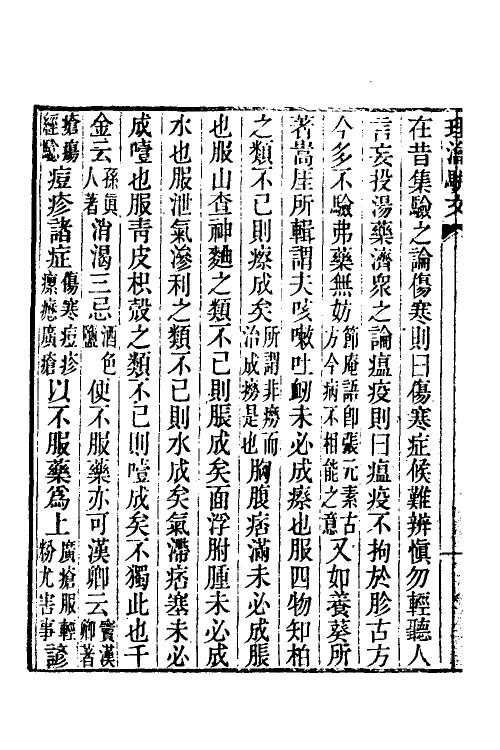 理瀹駢文
一
在昔集驗之論傷寒則曰傷寒症候難辨愼勿輕聽人
言妄投湯藥濟衆之論瘟疫則曰瘟疫不拘於胗古方
今多不驗弗藥無妨節庵語卽張元素古方今病不相能之意又如養葵所
著嵩厓所輯謂夫咳嗽吐衂未必成瘵也服四物知柏
之類不已則瘵成矣所謂非癆而治成癆是也胸腹痞滿未必成脹
也服山查神麯之類不已則脹成矣面浮胕腫未必成
水也服泄氣滲利之類不已則水成矣氣滯痞塞未必
成噎也服靑皮枳殼之類不已則噎成矣不獨此也千
金云孫眞人著消渴三忌酒色鹽使不服藥亦可漢卿云竇漢卿著
瘡瘍經驗痘疹諸症傷寒痘疹瘰癧廣瘡以不服藥爲上廣瘡服輕粉尤害事諺